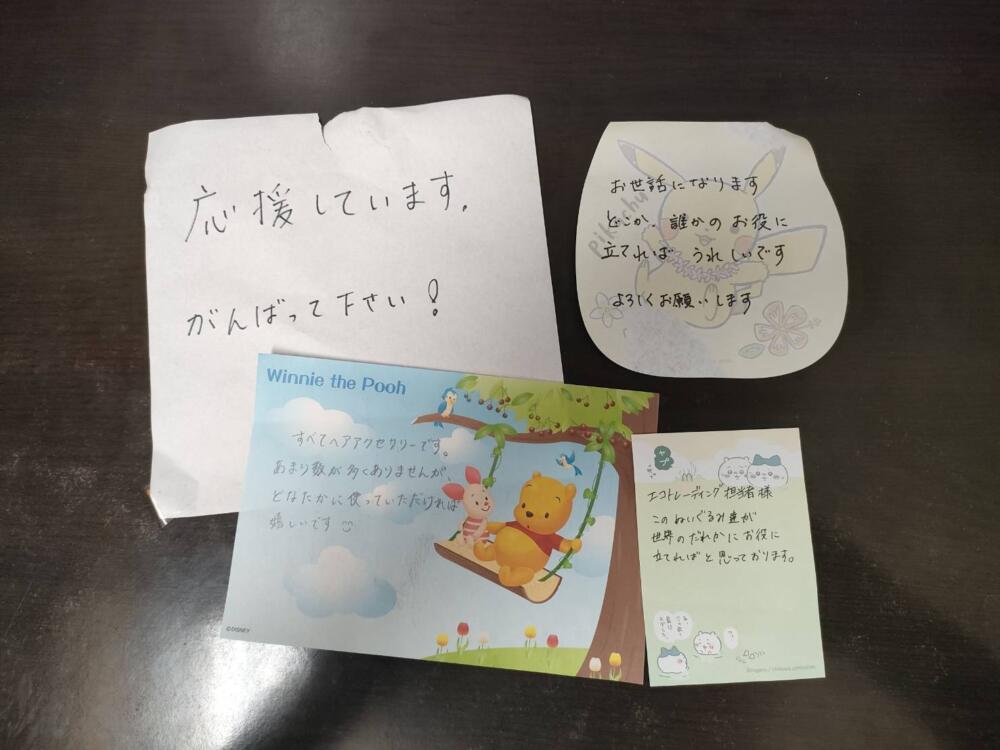 応援しています。
がんばって下さい!
Pikachu
お世話になります
どこか、誰かのお役に
立てれば うれしいです
よろしくお願いします
Winnie the Pooh
すべてヘアアクセサリーです。
あまり数が多くありませんが、
どなたかに使っていただければ
嬉しいです
©DISNEY
エコトレーディング担当者様
このぬいぐるみ達が
世界のだれかにお役に
立てればと思っております。